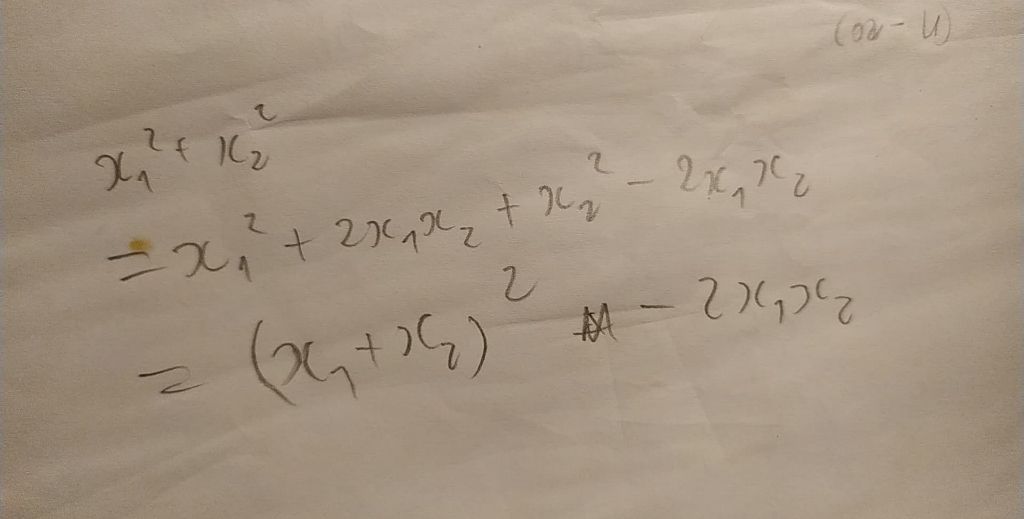 x₁² + x₂²
= x₁² + 2x₁x₂ + x₂² - 2x₁x₂
= (x₁ + x₂)² - 2x₁x₂